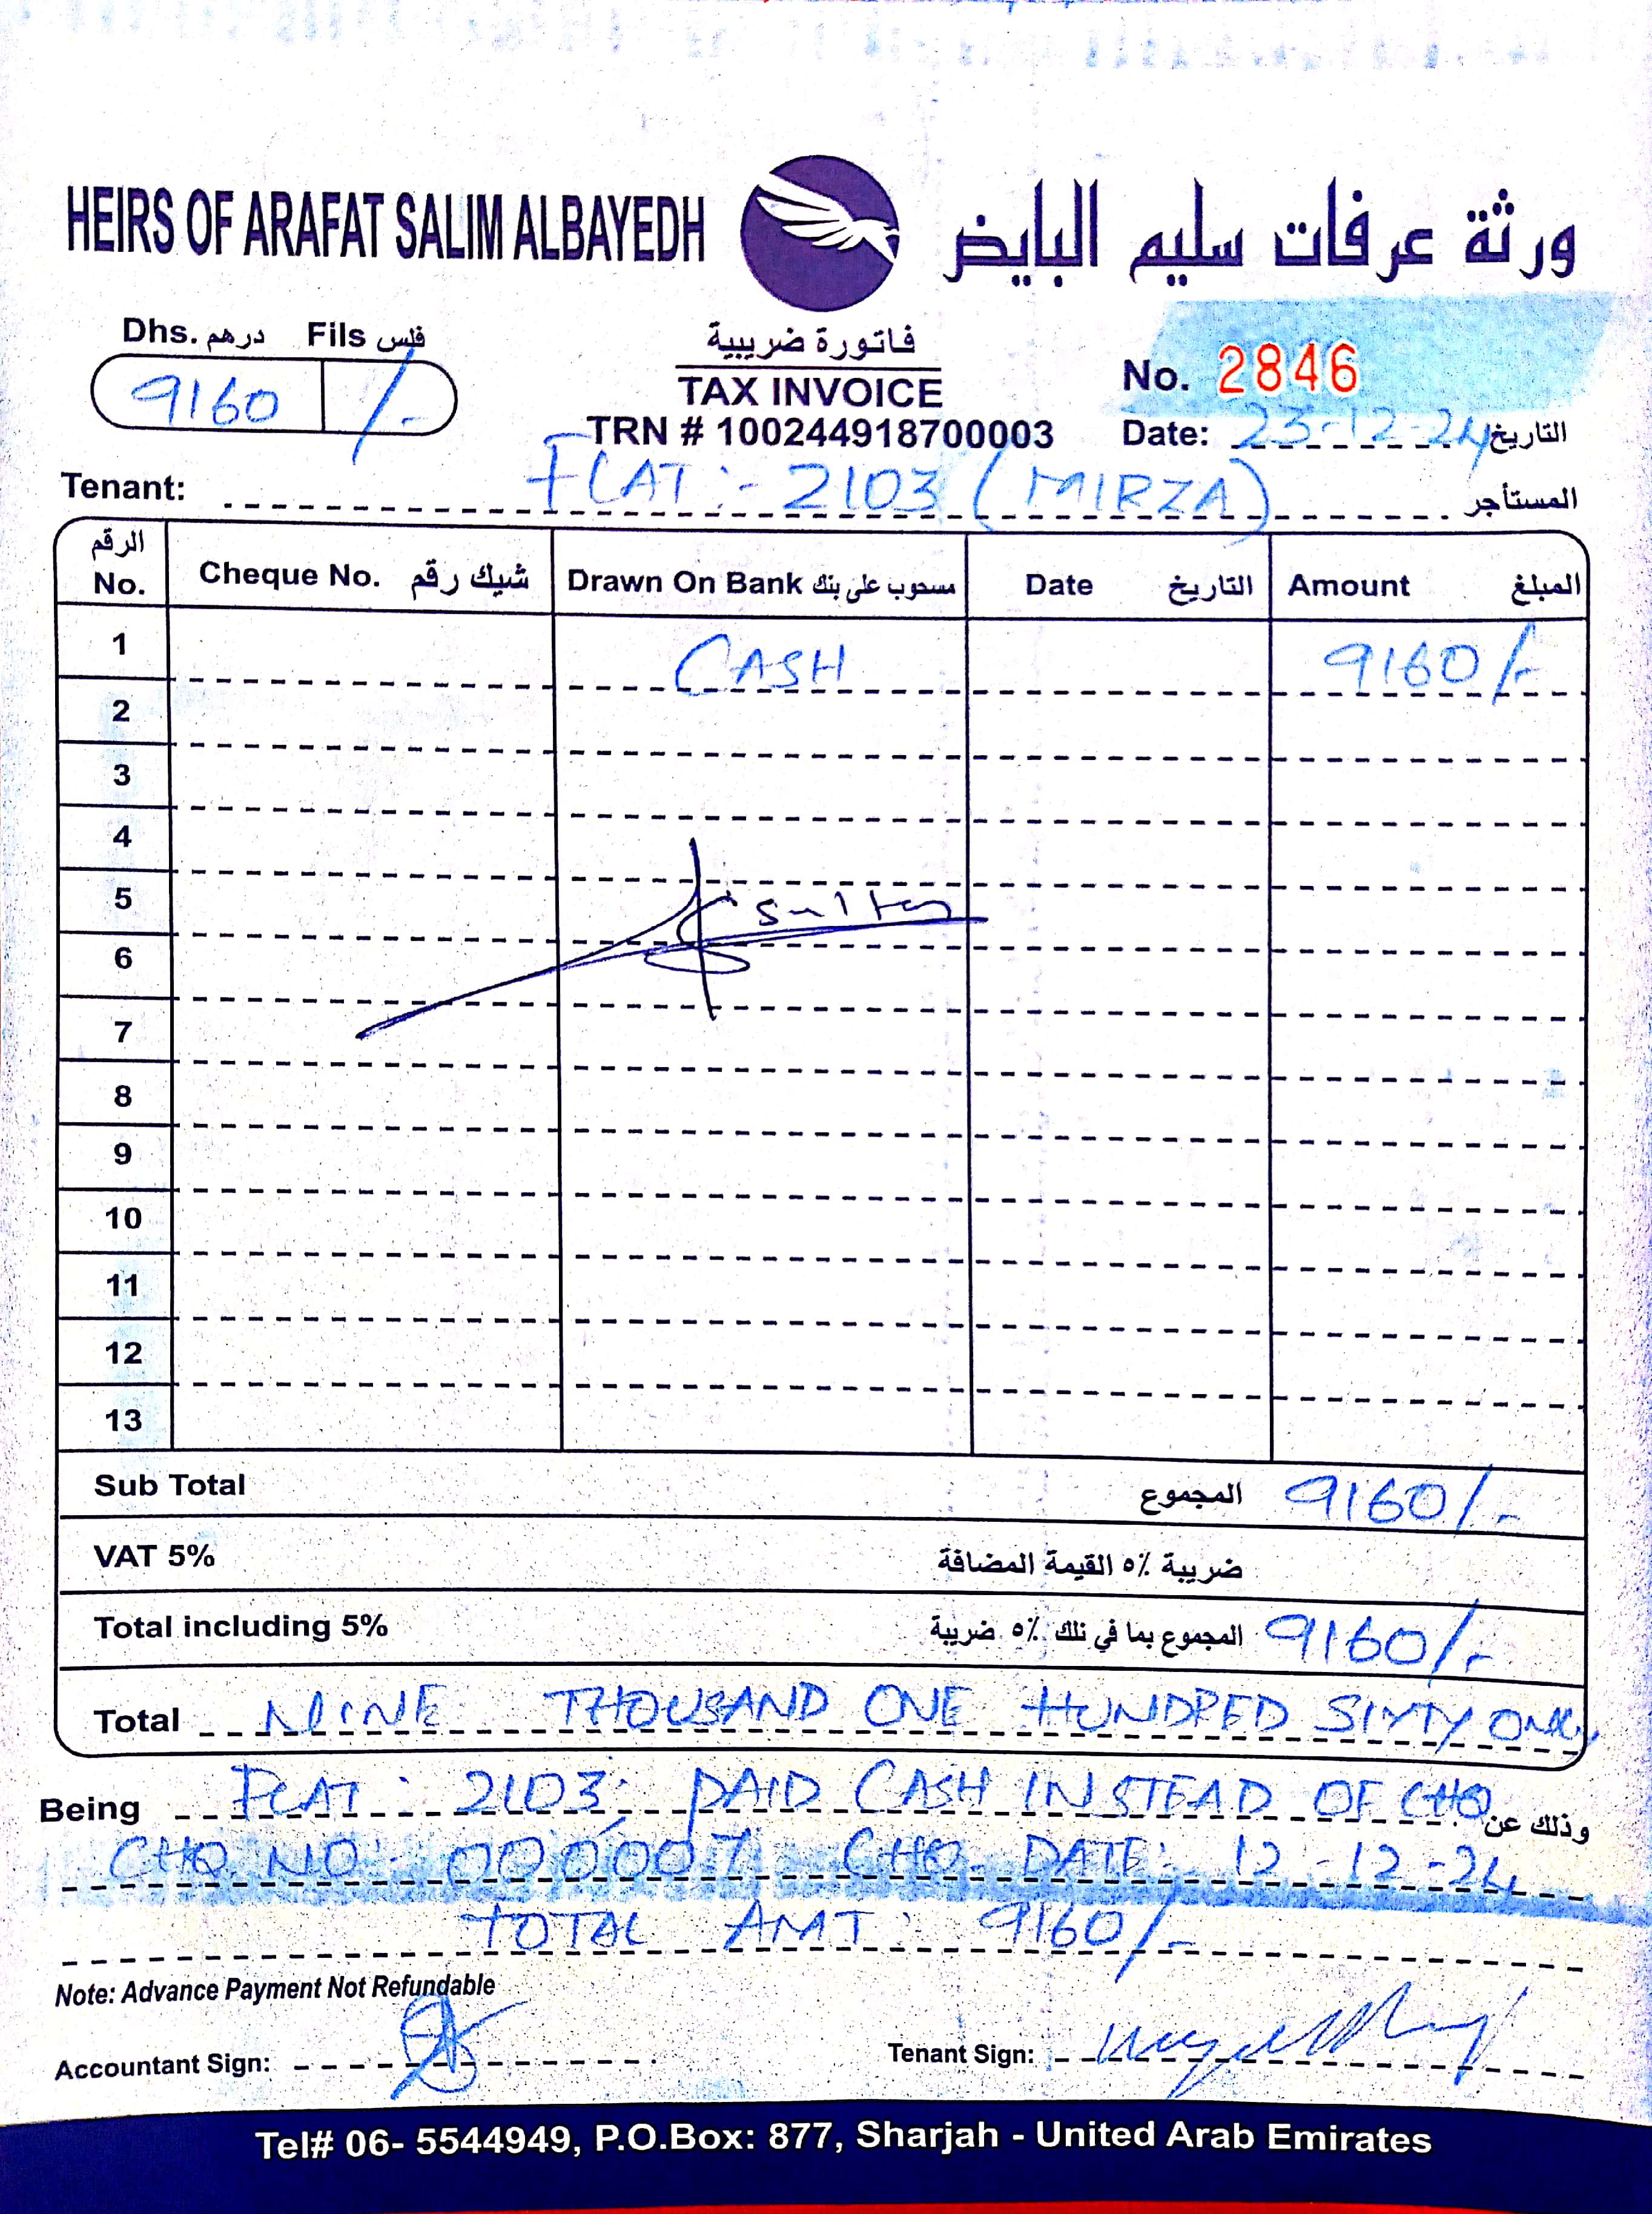 HEIRS OF ARAFAT SALIM ALBAYEDH ورثة عرفات سليم البايض
Dhs. درهم Fils فلس
9160 /-
فاتورة ضريبية
TAX INVOICE
TRN # 100244918700003
No. 2846
Date: 23-12-24 التاريخ
Tenant: FLAT:- 2103 (MIRZA) المستأجر
الرقم No. Cheque No. شيك رقم Drawn On Bank مسحوب على بنك Date التاريخ Amount المبلغ
1 CASH 9160/-
2
3
4
5 Sultan
6
7
8
9
10
11
12
13
Sub Total المجموع 9160/-
VAT 5% ضريبة ٥٪ القيمة المضافة
Total including 5% المجموع بما في ذلك ٥٪ ضريبة 9160/-
Total NINE THOUSAND ONE HUNDRED SIXTY ONLY
Being FLAT: 2103; PAID CASH INSTEAD OF CHQ. وذلك عن
CHQ. NO: 000007 CHQ. DATE: 12-12-24
TOTAL AMT: 9160/-
Note: Advance Payment Not Refundable
Accountant Sign:
Tenant Sign:
Tel# 06- 5544949, P.O.Box: 877, Sharjah - United Arab Emirates